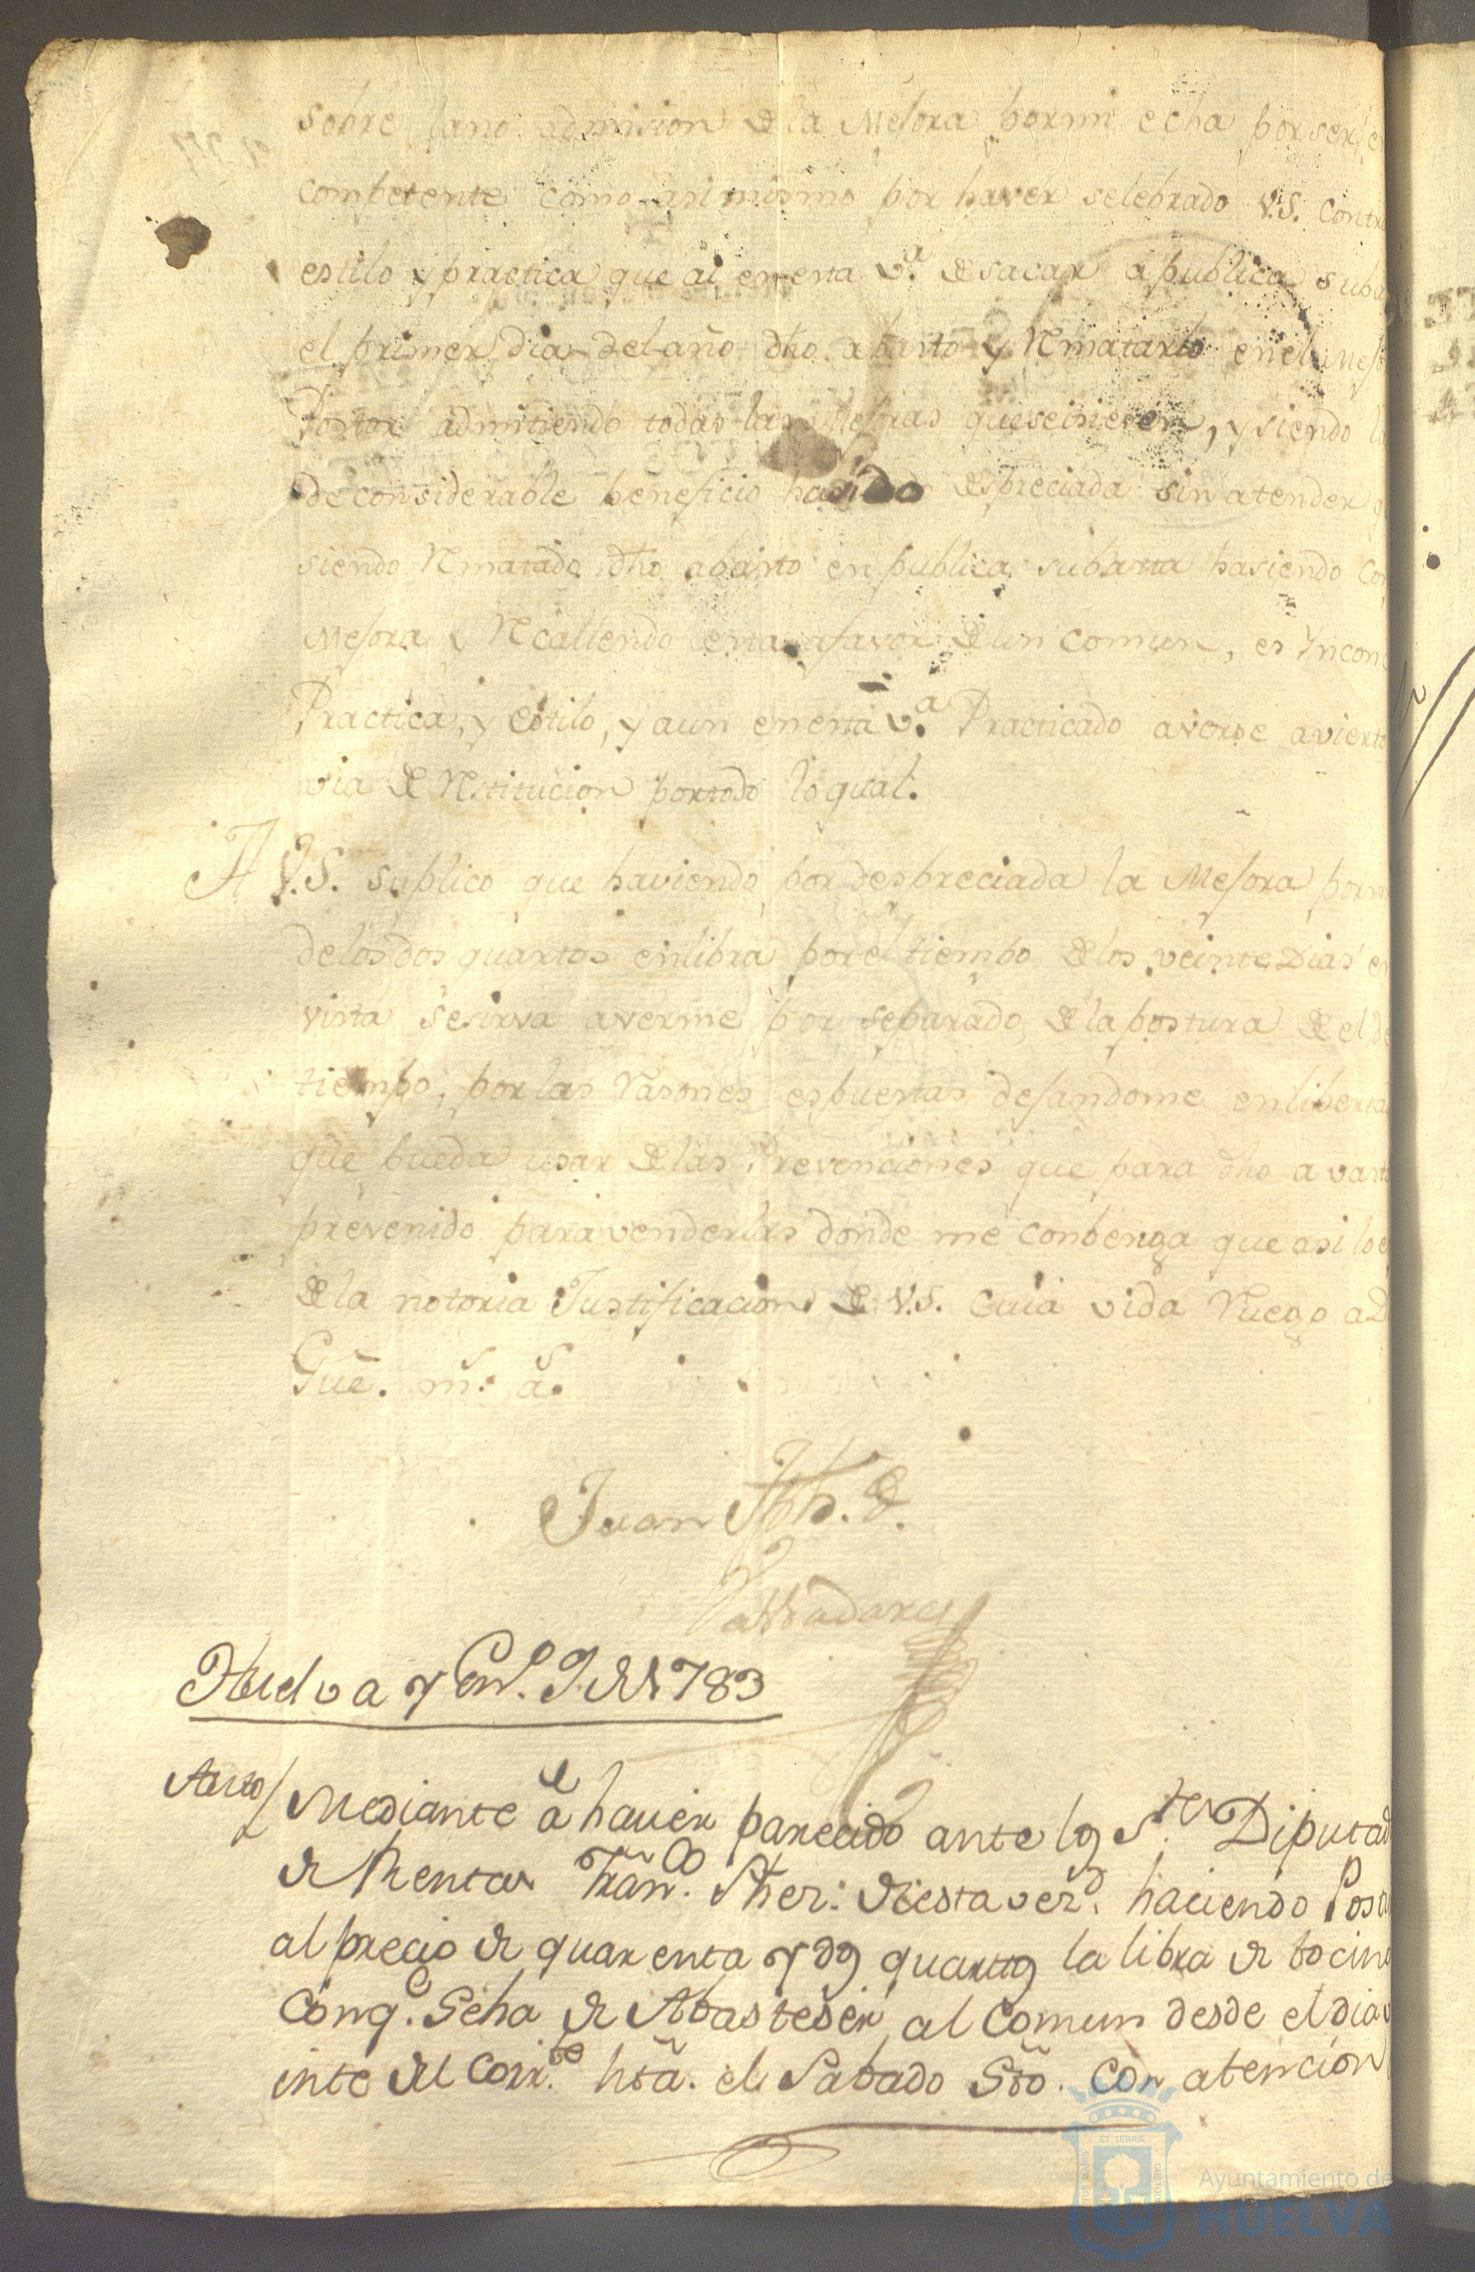 sobre lano admision de la Mesora pormi echa por ser
competente como asimismo por haver selebrado V.S. contra
estilo y practica que ai en esta v.ª de sacar a publica suba
el primer dia del año dho. abasto y Rematarlo en el Mejo
Postor admitiendo todas las Mejoras queseicieren, y siendo l
de considerable beneficio ha sido despreciada sin atender q
siendo Rematado dho abasto en publica subasta hasiendo co
Mesora y Recallendo esta afavor de un comun, es Incon
Practica, y estilo, y aun en esta v.ª Practicado averse avierto
via de Restitucion portodo loqual.
A V.S. suplico que haviendo por despreciada la Mesora porm
delosdos quartos enlibra por el tiempo de los veinte Dias en
vista sesirva averme por separado de la postura de el de
tiempo, por las Rasones espuestas desandome enliberta
que pueda usar de las Prevenciones que para dho avasto
prevenido para venderlas donde me conbenga que asi lo e
de la notoria Justificacion de V.S. cuia vida Ruego a D
Gue. m.s a.s
Juan Jph. de
Valladares
Huelva y En.o 9 de 1783
Auto/ Mediante a haver parecido ante los S.res Diputad
de Rentas Fran.co de esta vez.d haciendo Post
al precio de quarenta y dos quartos la libra de tocino
Conq.e Seha de Abasteser al Comun desde el dia v
inte del Corr.te hta. el Sabado Sto. Con atencion
ET TERRÆ
Ayuntamiento de
HUELVA